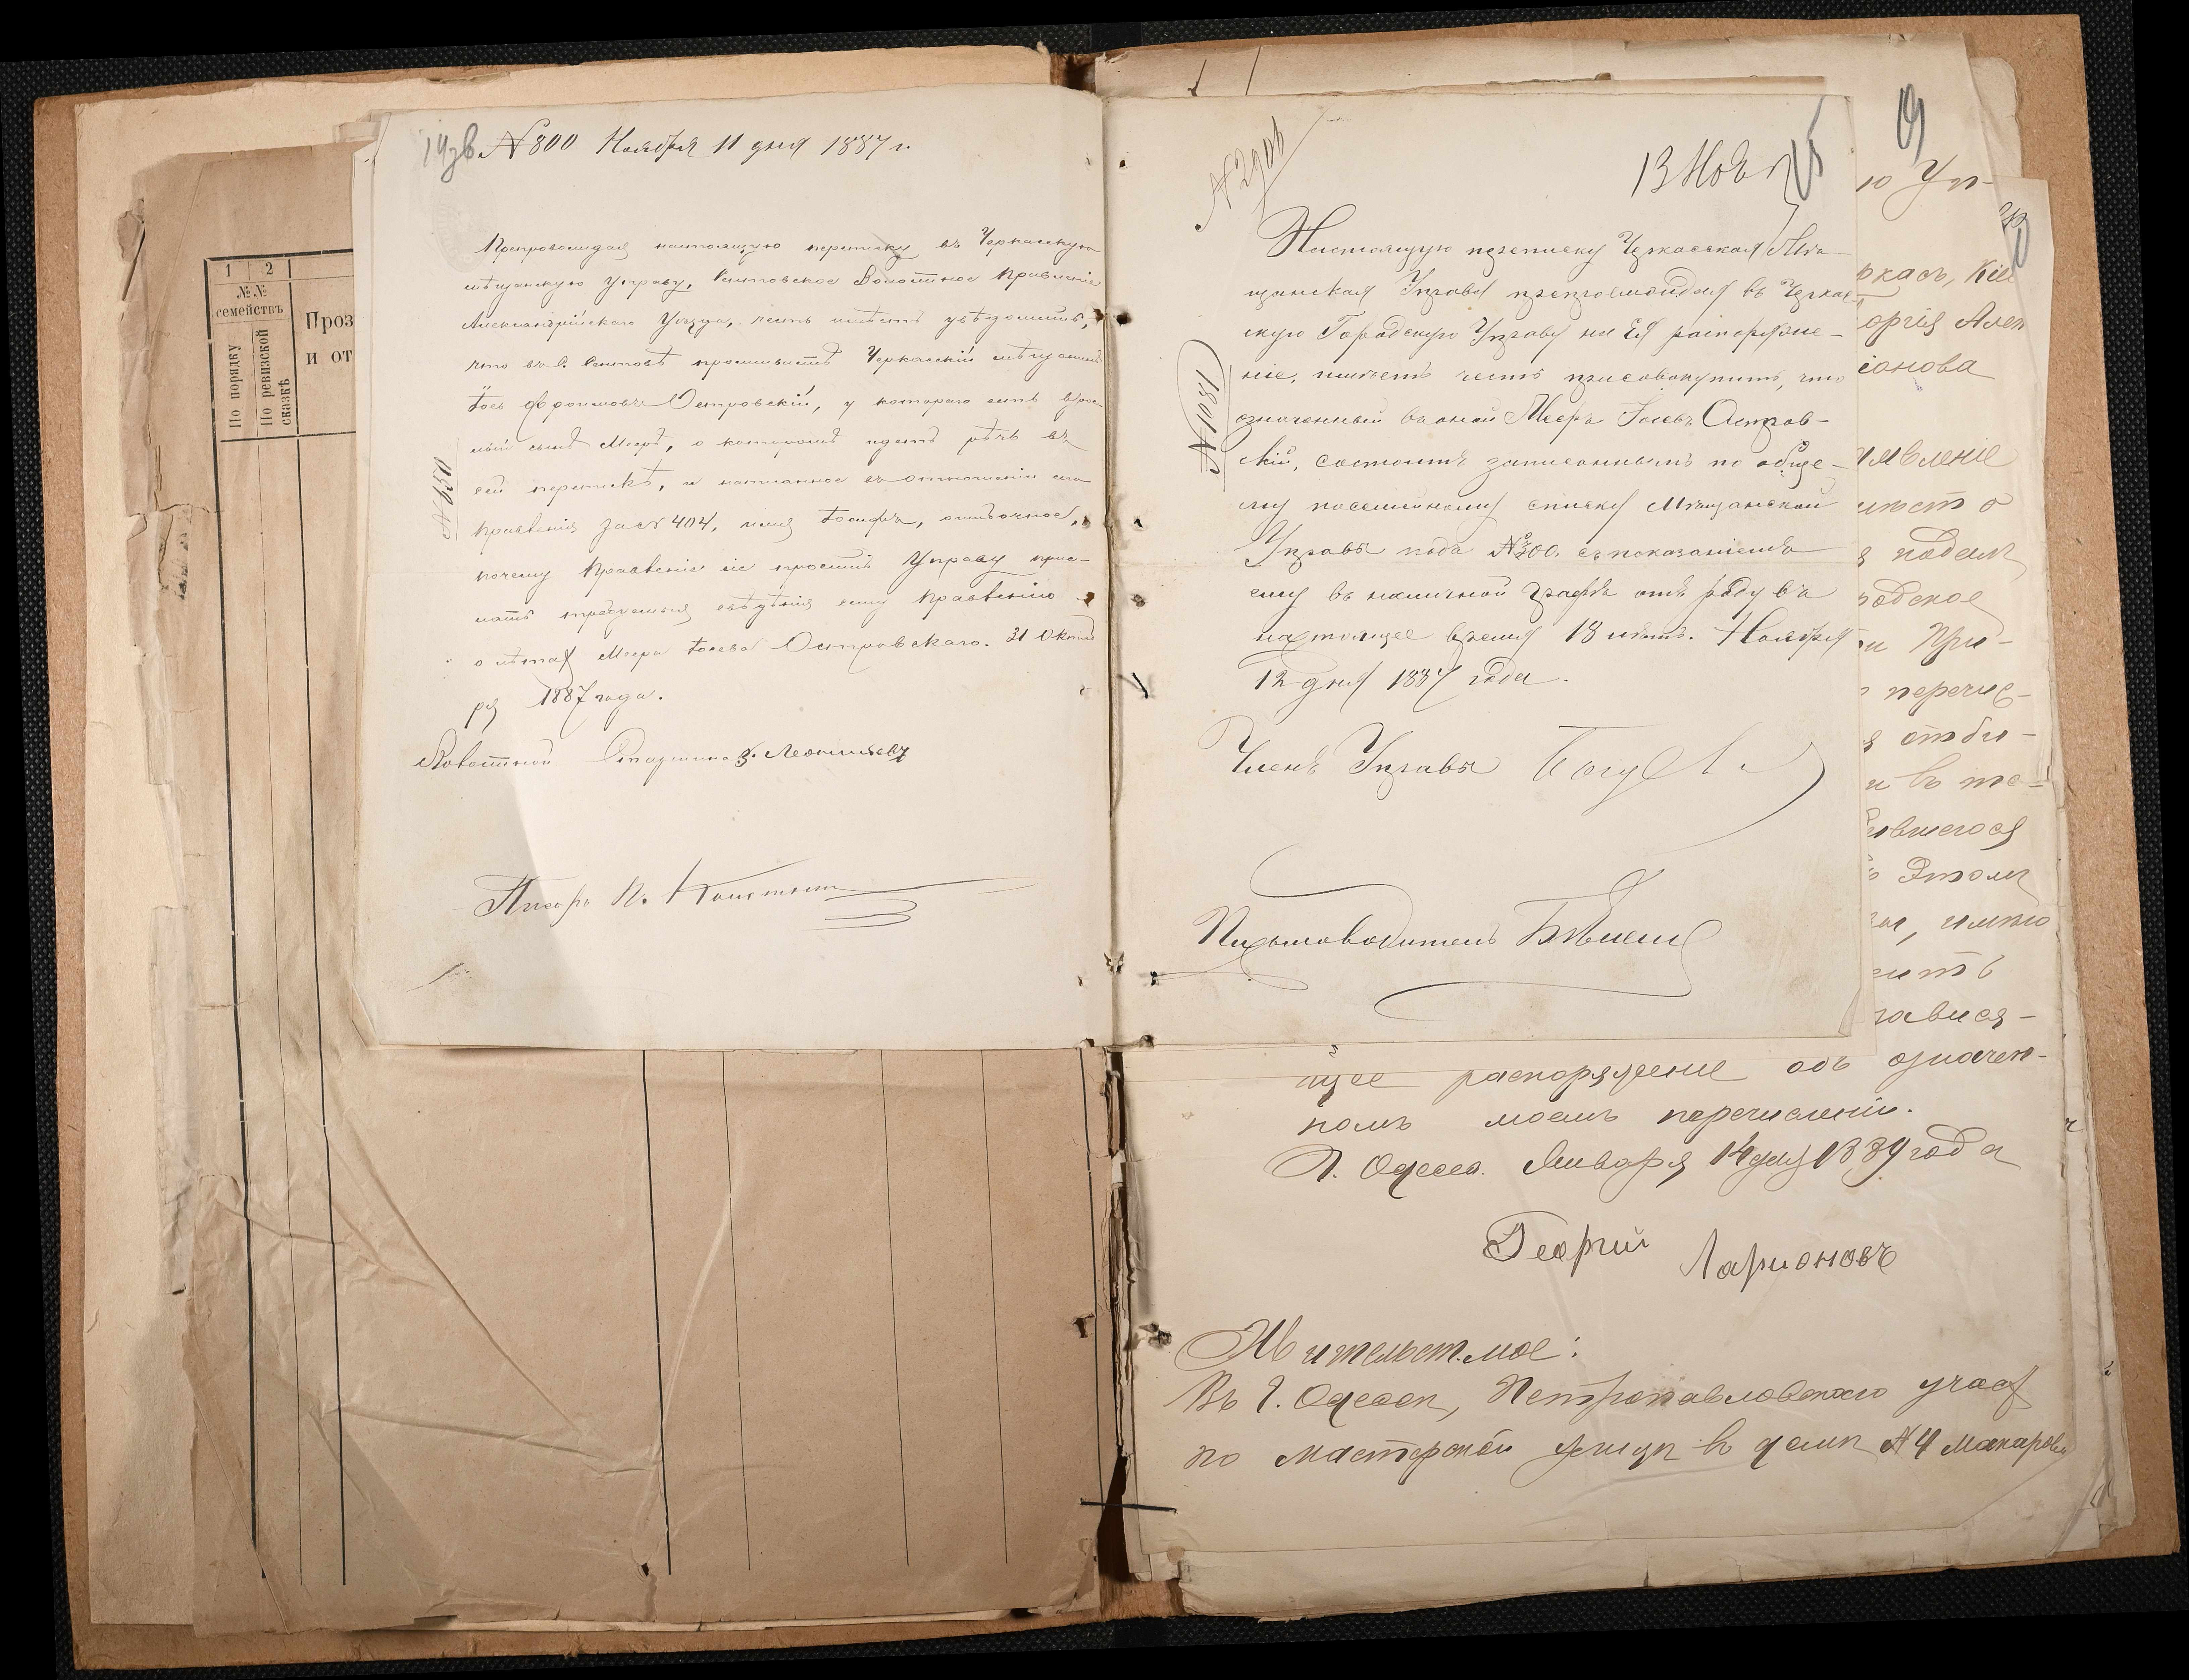 1 2
№№
семействъ
По порядку
По ревизской сказкѣ
Проз
и от
14 зв № 800 Ноября 11 дня 1887 г.
Препровождая настоящую переписку въ Черкасскую
мѣщанскую Управу, Волостное Правленіе
Александрійскаго Уѣзда, честь имѣетъ увѣдомить,
что въ с. проживаетъ Черкасскій мѣщанинъ
Іось Фроимовъ Островскій, у котораго есть
сынъ Мееръ, о которомъ идетъ рѣчь въ
сей перепискѣ, и написанное въ отношеніи сего
Правленія за № 404, имя Іосифъ, ошибочное,
почему Правленіе сіе проситъ Управу прис-
лать требуемыя свѣдѣнія сему Правленію
о лѣтах Меера Іосева Островскаго. 31 Октяб
ря 1887 года.
№ 650
Волостной Старшина З. Леонтьевъ
Писарь П.
№ 2906
13 Ноя
15
Настоящую переписку Черкасская Мѣ-
щанская Управа препровождая въ Черкас-
скую Городскую Управу на Ея распоряже-
ніе, имѣетъ честь присовокупить, что
означенный въ оной Мееръ Іосевъ Остров-
скій, состоитъ записаннымъ по обще-
му посемейному списку Мѣщанской
Управы подъ № 300. съ показаніемъ
ему въ наличной графѣ отъ роду въ
настоящее время 18 лѣтъ. Ноября
12 дня 1887 года.
№ 1801
Членъ Управы
Письмоводитель
ю Уп-
ркасъ, Кіе
оргія Алек
іонова
явленіе
подалъ
родское
При-
перечис-
отбы-
и въ то-
вшегося
Этомъ
имѣю
ить
завися-
щее распоряженіе объ означен-
номъ моемъ перечисленіи.
Г. Одесса. Января 14 дня 1889 года
Георгий Ларионовъ
Жительст. мое:
Въ Г. Одессѣ, Петропавловскаго участ
по мастерской улицѣ въ домѣ № 4 Макарова